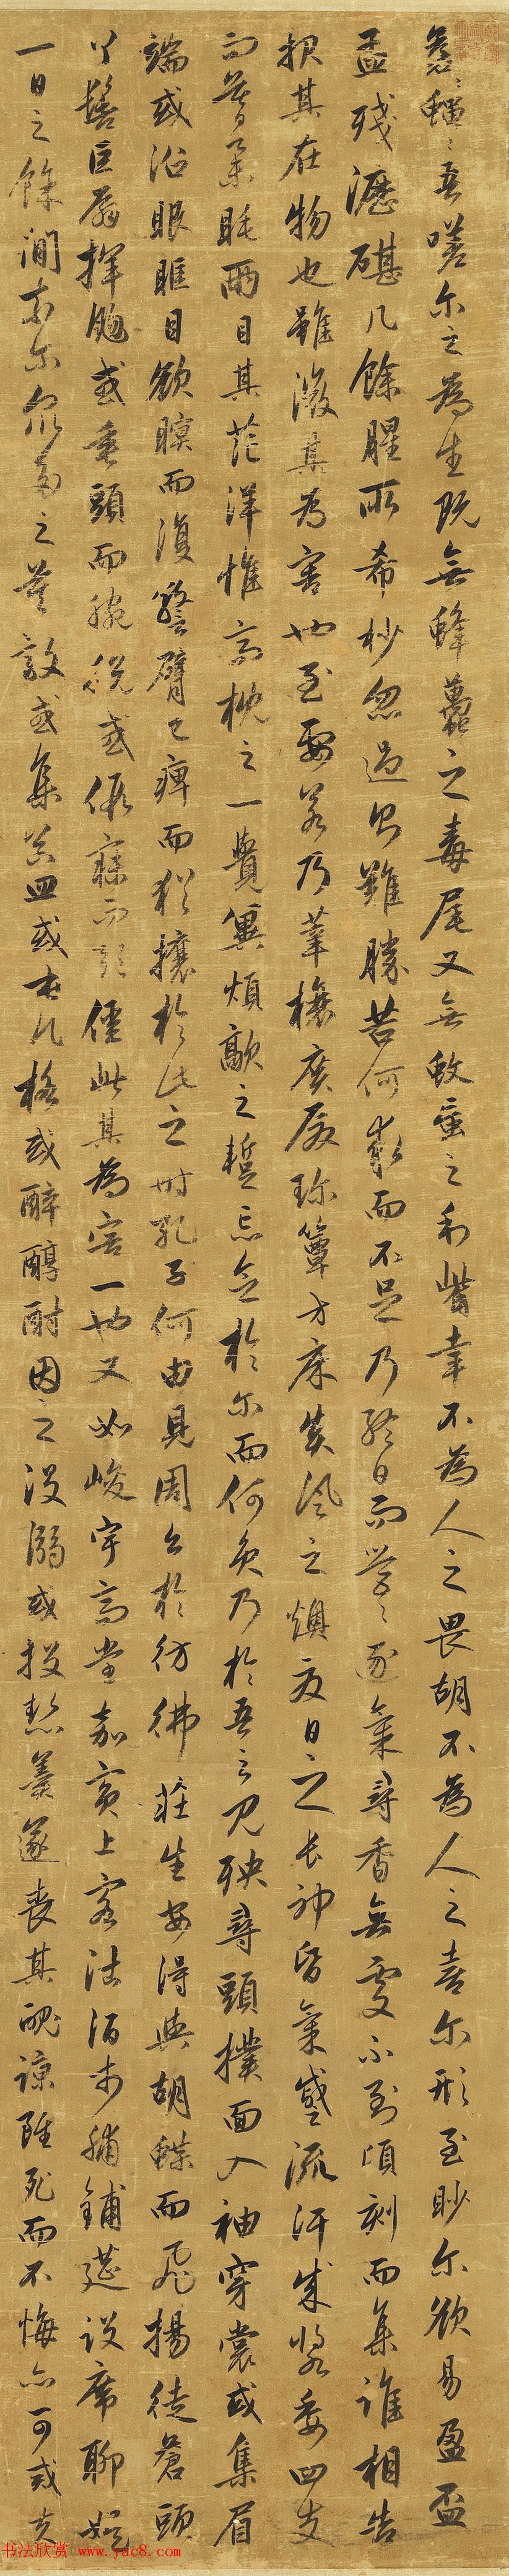 蒼〻蠅〻吾嗟尔之為生既無蜂蠆之毒尾又無蚊䖟之利觜幸不為人之畏胡不為人之喜尔形至眇尔欲易盈盃
盂殘瀝碪几餘腥所希杪忽過則難勝苦何求而不足乃終日而營〻逐氣尋香無處不到頃刻而集誰相告
報其在物也雖微其為害也至要若乃華榱廣廈珎簟方床炎風之燠夏日之長神昏氣蹙流汗成漿委四支
而莫舉眊兩目其茫洋惟高枕之一覺冀煩歊之蹔忘念於尔而何負乃於吾之見殃尋頭撲面入袖穿裳或集眉
端或沿眼眶目欲瞑而復警臂已痺而猶攘於此之時孔子何由見周公於彷彿莊生安得與胡蝶而飛揚徒蒼頭
丫髻巨扇揮颺或垂頭而腕脱或假寐而顛僵此其為害一也又如峻宇高堂嘉賓上客沽酒市脯鋪筵設席聊娱
一日之餘閒奈尔衆多之莫敵或集器皿或屯几格或醉醇酎因之沒溺或投熱羹遂喪其魄諒雖死而不悔亦可戒夫
书法欣赏 www.yac8.com